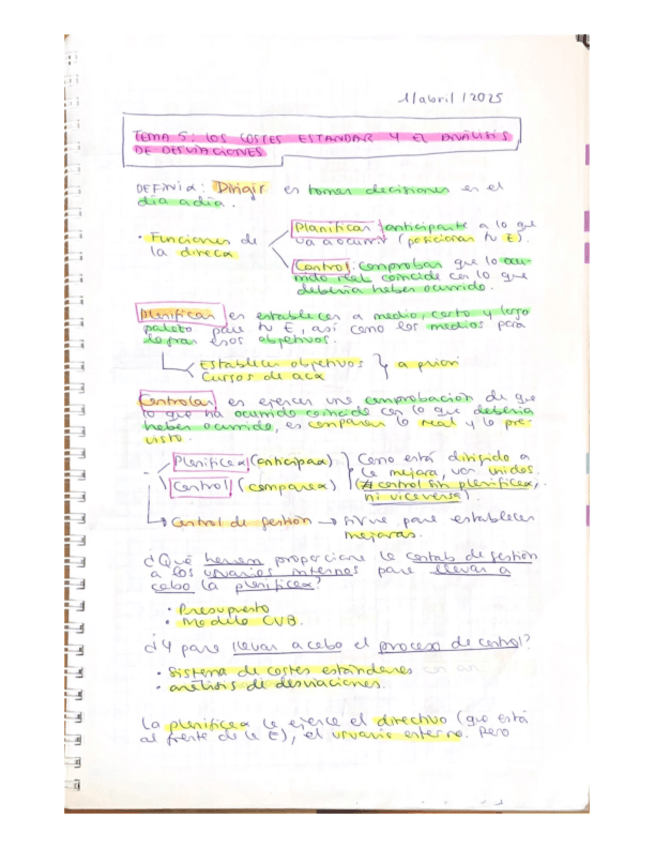 1/abril/2025
TEMA 5: LOS COSTES ESTANDAR Y EL ANÁLISIS
DE DESVIACIONES
DEFINIx: Dirigir es tomar decisiones en el
día a día.
Planificar: anticiparte a lo que
• Funciones de va a ocurrir (posicionar tu E).
la direcx
Control: comprobar que lo ocu-
rrido real coincide con lo que
debería haber ocurrido.
Planificar es establecer a medio, corto y largo
para tu E, así como los medios para
lograr esos objetivos.
Establecer objetivos } a priori
Cursos de acx
Controlar es ejercer una comprobación de que
lo que ha ocurrido coincide con lo que debería
haber ocurrido, es comparar lo real y lo pre-
visto.
Planificax (anticipax) Como está dirigido a
la mejora, van unidos.
Control (comparax) (∄ control sin planificax,
ni viceversa).
↳ Control de gestión → sirve para establecer
mejoras.
¿Qué proporciona la contab de gestión
a los usuarios internos para llevar a
cabo la planificax?
• Presupuesto
• Modelo CVB.
¿Y para llevar a cabo el proceso de control?
• Sistema de costes estándares
• análisis de desviaciones.
La planificax la ejerce el directivo (que está
al frente de la E), el usuario externo. Pero